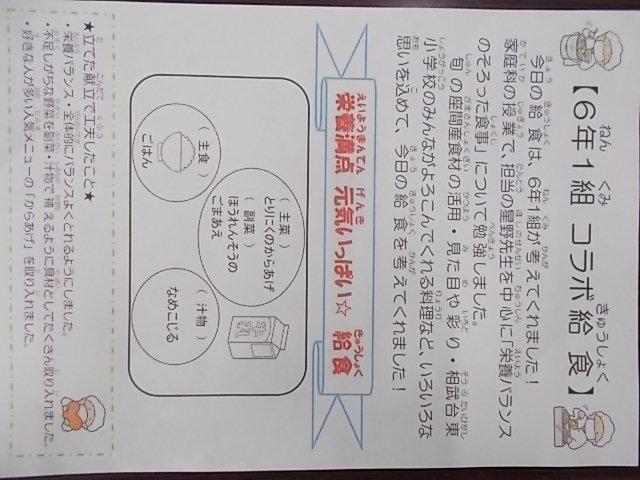 【６年１組 コラボ給食】
今日の給食は、６年１組が考えてくれました！
家庭科の授業で、担当の星野先生を中心に「栄養バランス
のそろった食事」について勉強しました。
旬の座間産食材の活用・見た目や彩り・相武台東
小学校のみんながよろこんでくれる料理など、いろいろな
思いを込めて、今日の給食を考えてくれました！
栄養満点 元気いっぱい☆ 給食
（主食）
ごはん
（主菜）
とりにくのからあげ
（副菜）
ほうれんそうの
ごまあえ
（汁物）
なめこじる
★立てた献立で工夫したこと★
・栄養バランス・全体的にバランスよくとれるようにしました。
・不足しがちな野菜を副菜・汁物で補えるように具材としてたくさん取り入れました。
・好きな人が多い人気メニューの「からあげ」を取り入れました。